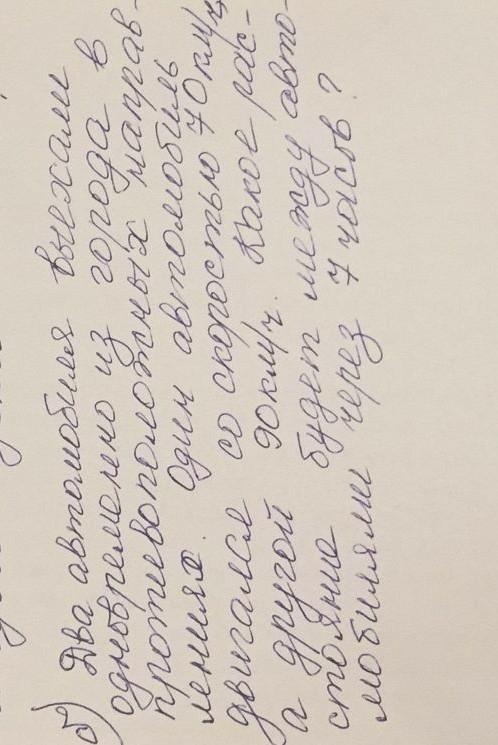 б) Два автомобиля выехали
одновременно из города в
противоположных направ-
лениях. Один автомобиль
двигался со скоростью 70 км/ч,
а другой 90 км/ч. Какое рас-
стояние будет между авто-
мобилями через 7 часов?